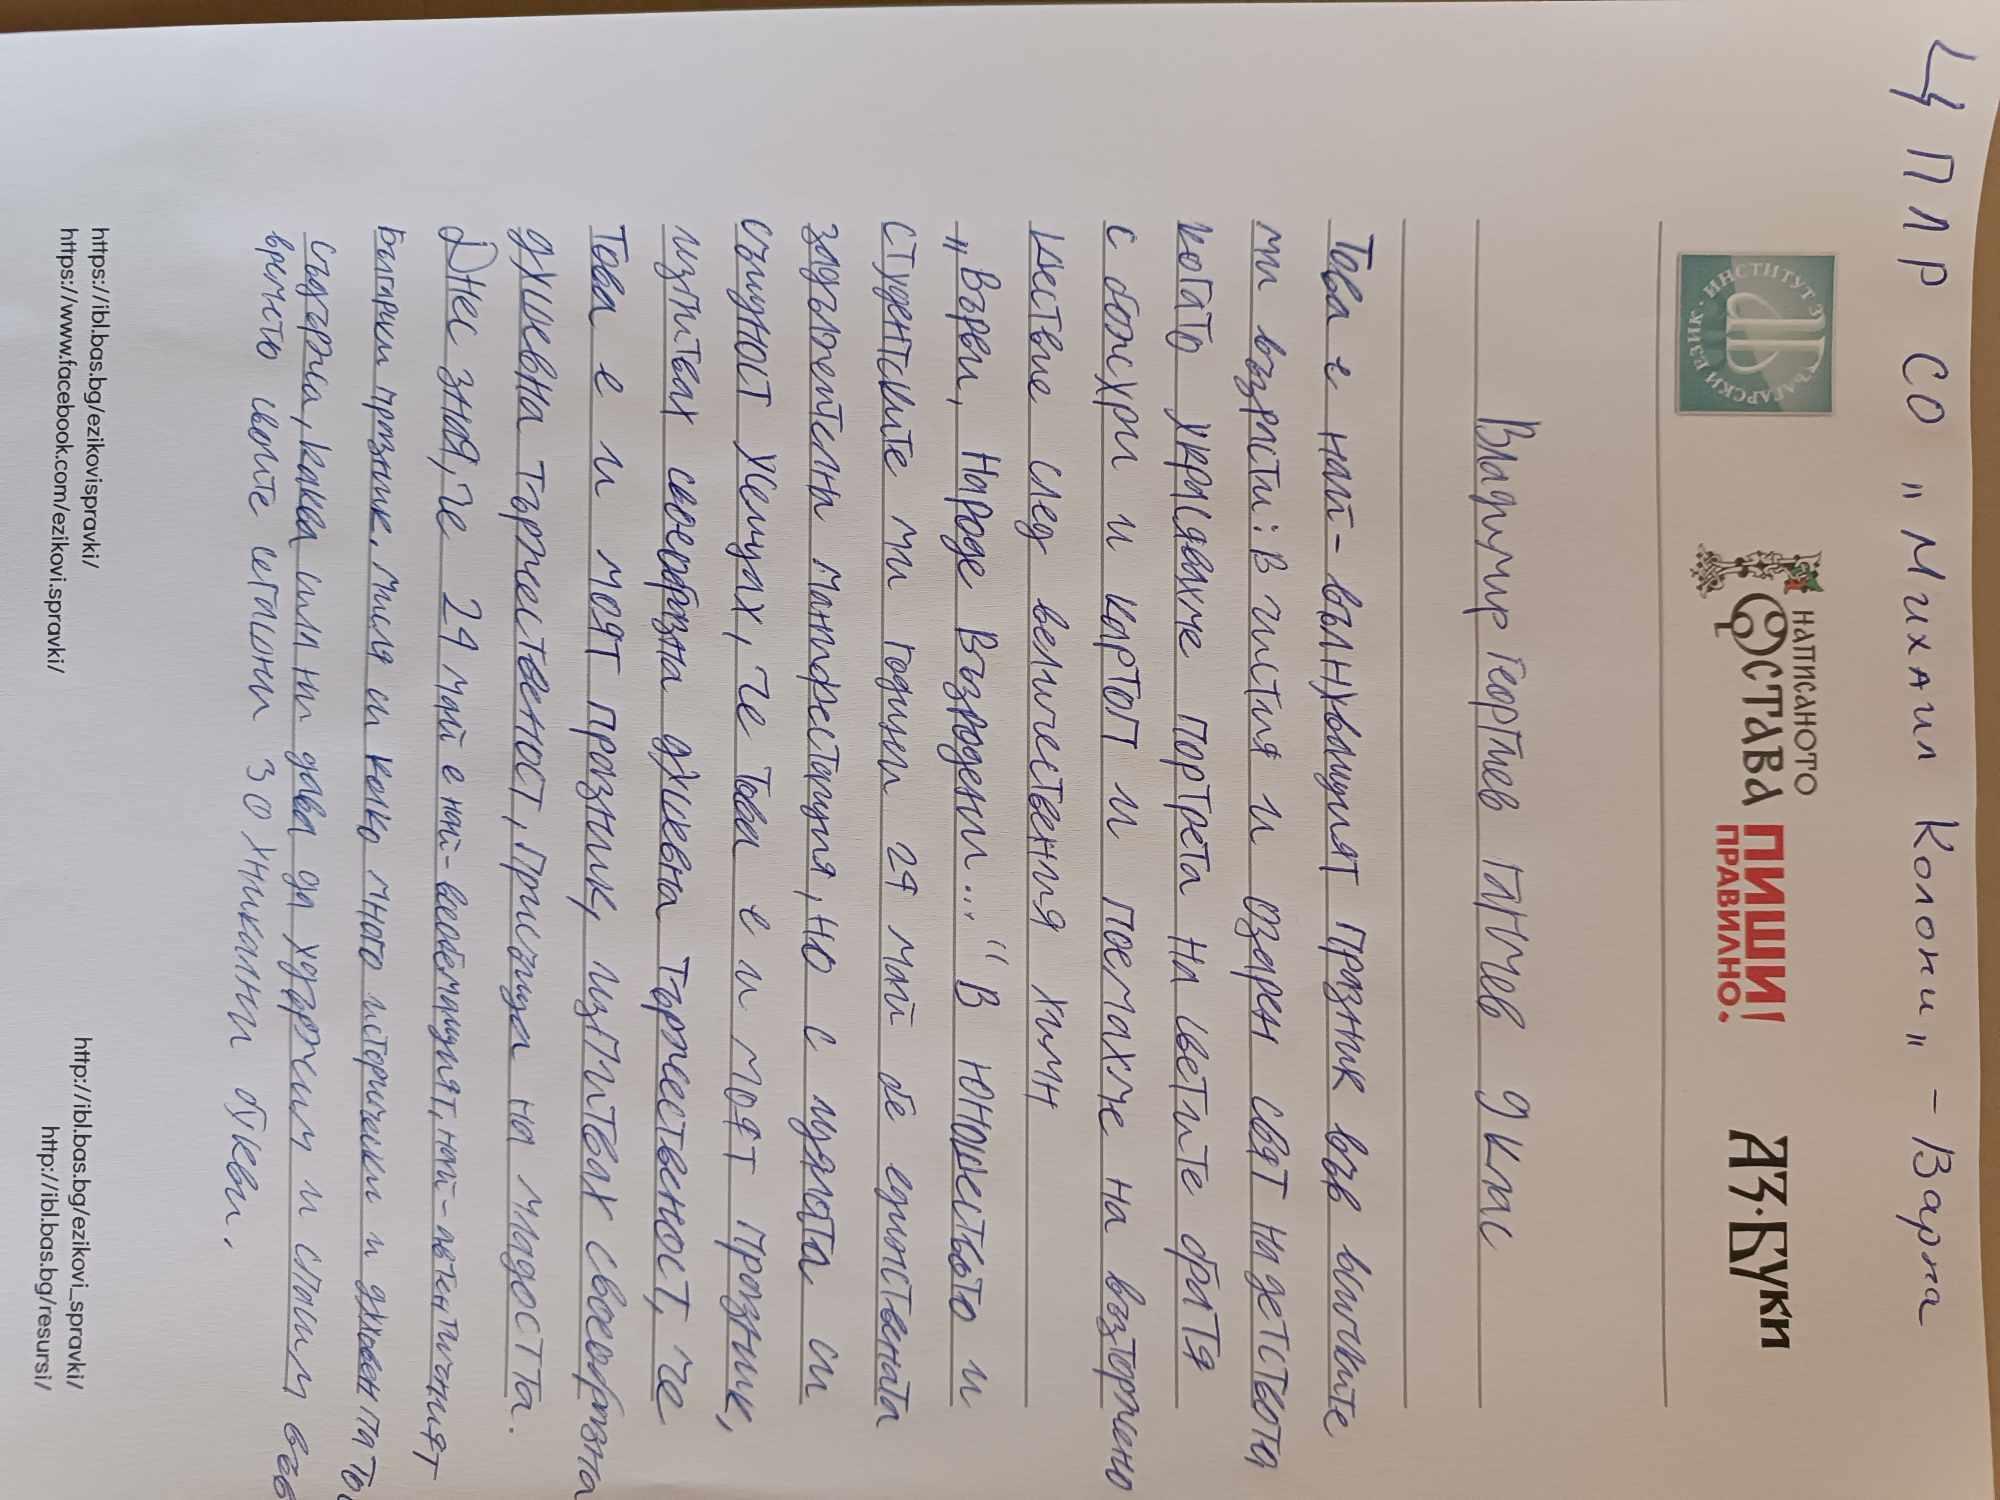 ЦПЛР СО „Михаил Колони" - Варна
ИНСТИТУТ ЗА БЪЛГАРСКИ ЕЗИК
НАПИСАНОТО
ОСТАВА
ПИШИ!
ПРАВИЛНО.
АЗ·БУКИ
Владимир Георгиев Ганчев 9 клас
Това е най-вълнуващият празник във всичките
ми възрасти: В чистия и озарен свят на детството
когато украсявахме портрета на светите братя
с божури и картоп и поемахме на възторжено
шествие след величествения химн
„Върви, Народе Възродени..." В юношеството и
студентските ми години 24 май бе единствената
задължителна манифестация, но с цялата си
същност усещах, че това е и моят празник,
изпитвах своеобразна душевна тържественост, че
това е и моят празник, изпитвах своеобразна
душевна тържественост, присъща на младостта.
Днес зная, че 24 май е най-всеобемащият, най-автентичният
български празник. Мисля си колко много исторически и духовен патос
съдържа, каква сила ни дава да удържим и спасим във
времето своите сегашни 30 уникални букви.
https://ibl.bas.bg/ezikovispravki/
https://www.facebook.com/ezikovi.spravki/
http://ibl.bas.bg/ezikovi_spravki/
http://ibl.bas.bg/resursi/